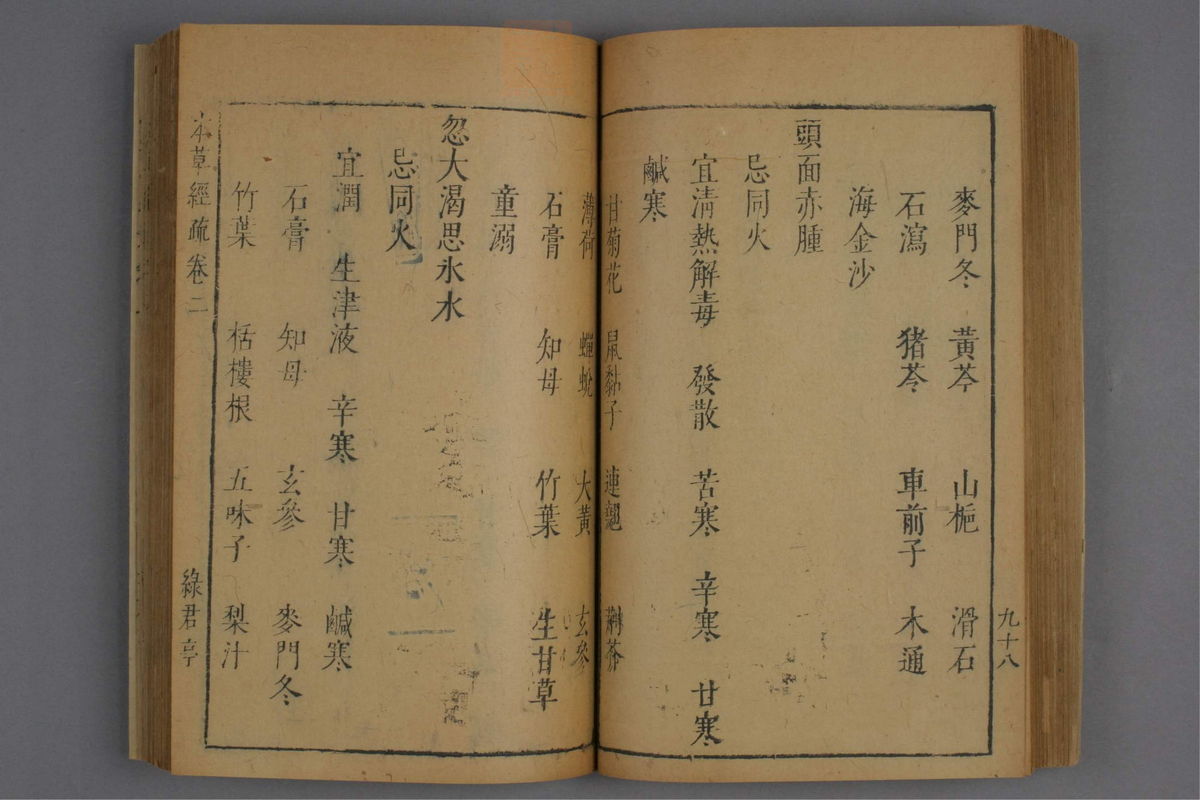 九十八
麥門冬 黃芩 山梔 滑石
石瀉 猪苓 車前子 木通
海金沙
頭面赤腫
忌同火
宜清熱解毒 發散 苦寒 辛寒 甘寒
鹹寒
甘菊花 鼠黏子 連翹 荆芥
薄荷 蟬蛻 大黃 玄參
石膏 知母 竹葉 生甘草
童溺
忽大渴思氷水
忌同火
宜潤 生津液 辛寒 甘寒 鹹寒
石膏 知母 玄參 麥門冬
竹葉 栝樓根 五味子 梨汁
本草經疏 卷二 綠君亭